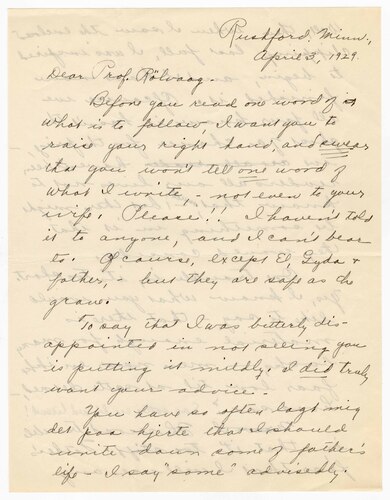 Rushford, Minn.,
April 3, 1929.
Dear Prof. Rölvaag:
Before you read one word of
what is to follow, I want you to
raise your right hand, and swear
that you won't tell one word of
what I write, - not even to your
wife. Please!! I haven't told
it to anyone, and I can't bear
to. Of course, except El, Gyda +
father, - but they are safe as the
grave.
To say that I was bitterly dis-
appointed in not seeing you
is putting it mildly. I did truly
want your advice. -
You have so often lagt mig
det paa hjerte that I should
write down some of father's
life - I say "some" advisedly.